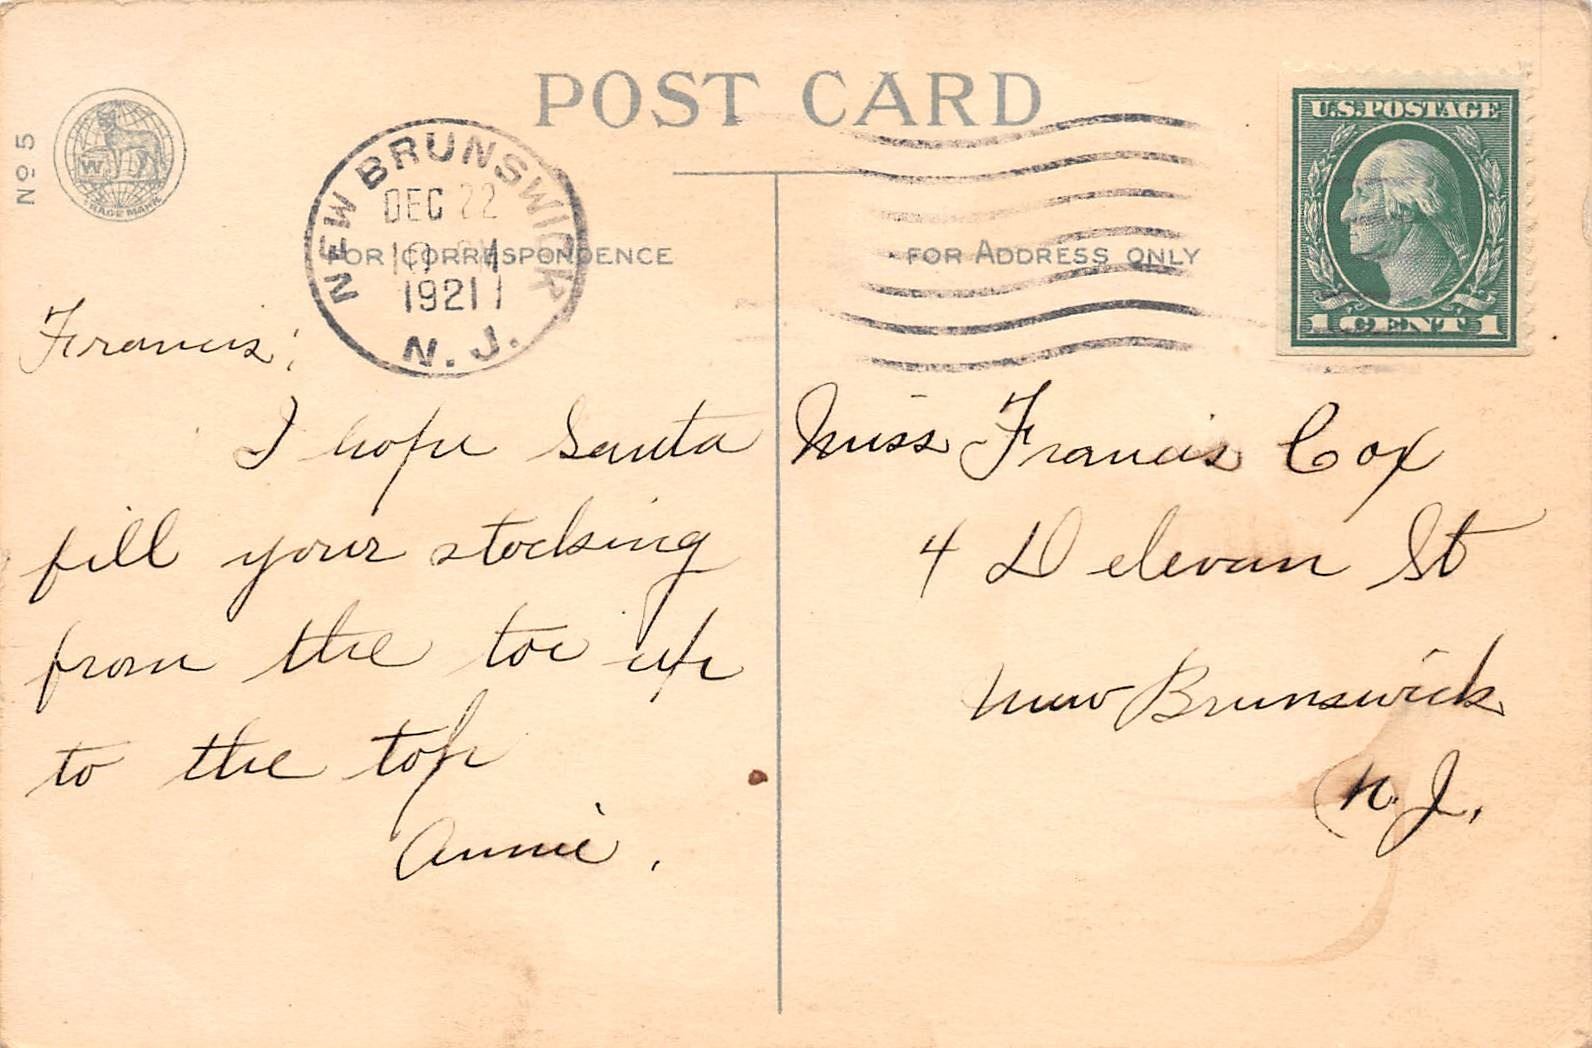 POST CARD
No 5
W
TRADE MARK
NEW BRUNSWICK
DEC 22
1921
N. J.
U.S. POSTAGE
1 CENT 1
FOR CORRESPONDENCE
FOR ADDRESS ONLY
Francis;
I hope Santa
fill your stocking
from the toe up
to the top
Annie.
Miss Francis Cox
4 Delevan St
New Brunswick
N. J.